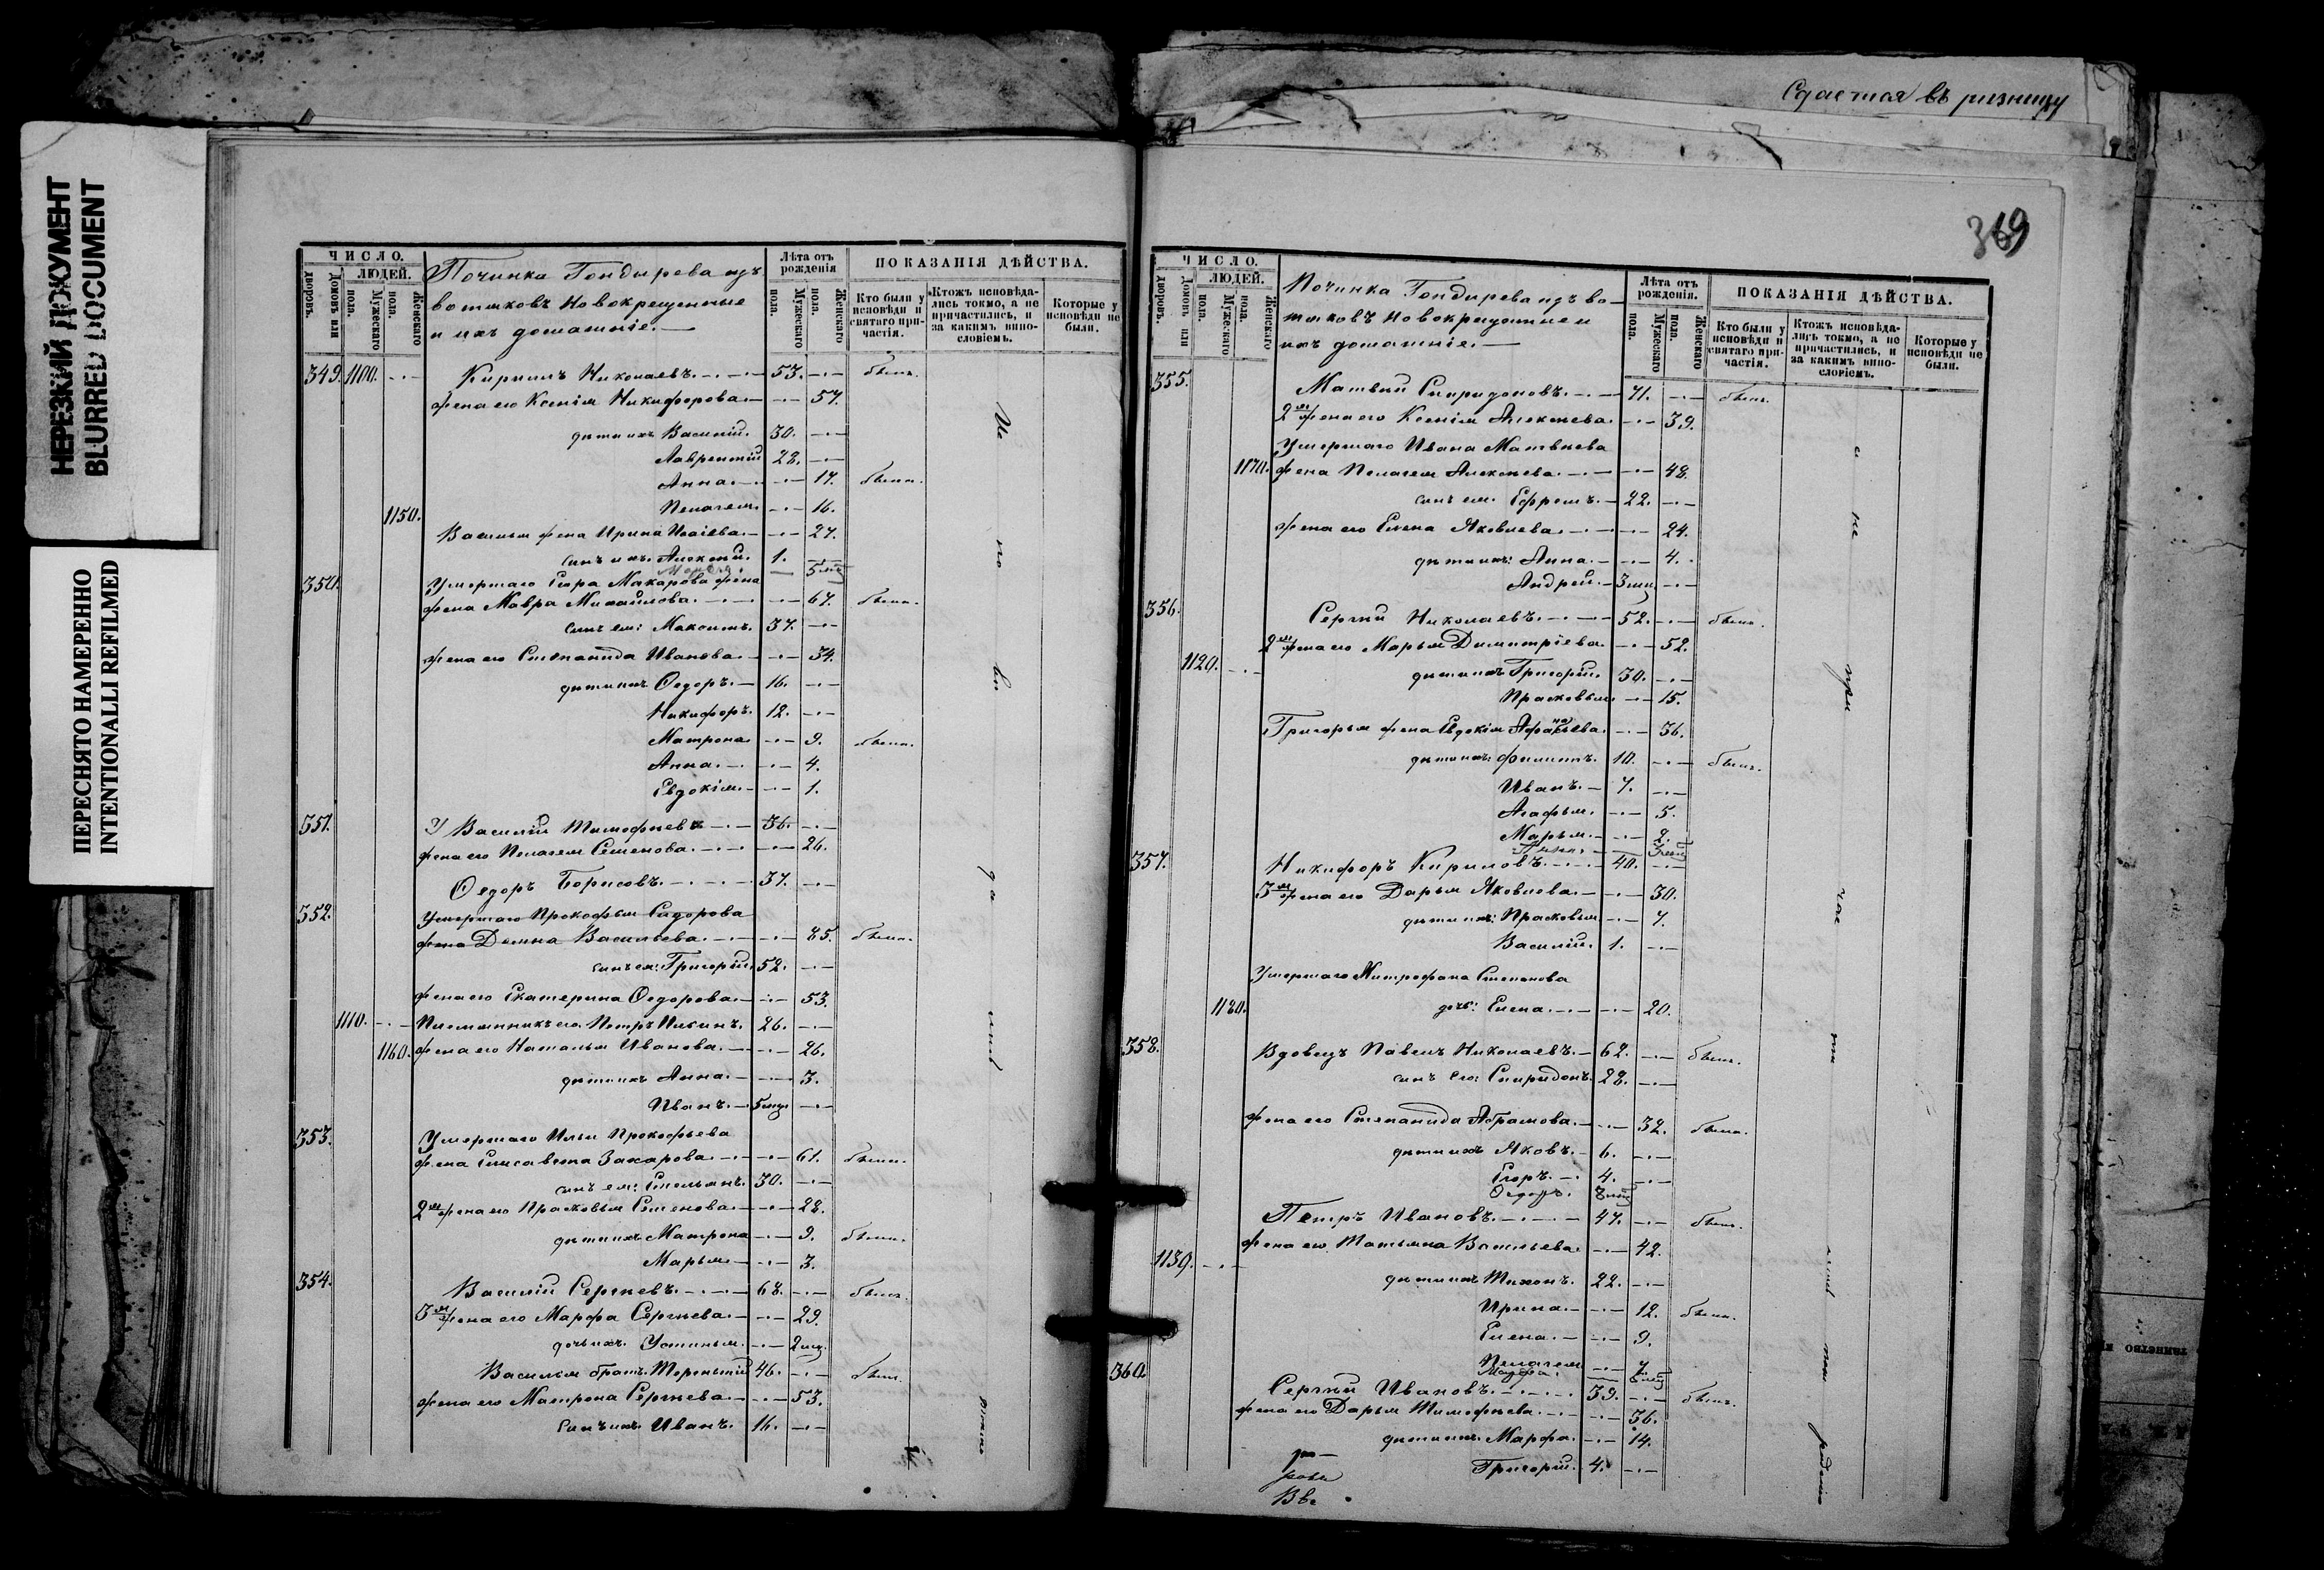 НЕРЕЗКИЙ ДОКУМЕНТ
BLURRED DOCUMENT
ПЕРЕСНЯТО НАМЕРЕННО
INTENTIONALLI REFILMED
Сдается въ ризницу
369
ЧИСЛО.
ЛЮДЕЙ.
Домовъ или дворовъ.
Мужескаго пола.
Женскаго пола.
Починка Гондырева изъ
вотяковъ Новокрещенные
и ихъ домашніе.
Лѣта отъ рожденія
Мужескаго пола.
Женскаго пола.
ПОКАЗАНІЯ ДѢЙСТВА.
Кто были у исповѣди и святаго причастія.
Ктожъ исповѣдались токмо, а не причастились, и за какимъ винословіемъ.
Которые у исповѣди не были.
349. 1100. Кирилъ Николаевъ. 53. былъ.
жена его Ксенія Никифорова 57.
дѣти ихъ Василій. 30.
Лаврентій 28.
Анна. 17. были.
1150. Пелагея 16.
Василья жена Ирина Исаіева 27.
сынъ ихъ Алексѣй. 1.
5 мѣс
350. Умершаго Егора Макарова жена
жена Мавра Михайлова. 67. была.
сынъ ея: Максимъ. 37.
жена его Степанида Иванова. 34.
дѣти ихъ Ѳедоръ. 16.
Никифоръ. 12.
Матрона 9. была.
Анна. 4.
Евдокія. 1.
351. Василій Тимофѣевъ 36.
жена его Пелагея Семенова. 26.
Ѳедоръ Борисовъ. 37.
352. Умершаго Прокофья Сидорова
жена Домна Васильева. 85. была.
сынъ ея: Григорій. 52.
жена его Екатерина Ѳедорова 53.
1110. Племянникъ его Петръ Ильинъ. 26.
1160. жена его Наталья Иванова. 26.
дѣти ихъ Анна. 3.
Иванъ. 5 мѣс
353. Умершаго Ильи Прокофьева
жена Елисавета Захарова. 61. была.
сынъ ея: Емельянъ. 30.
2я жена его Прасковья Семенова 28.
дѣти ихъ Матрона 9. была.
Марья 3.
354. Василій Сергѣевъ. 68. былъ.
3я жена его Марфа Сергѣева. 29.
дочь ихъ Устинья. 2 мѣс.
Василья братъ Терентій 46. былъ.
жена его Матрона Сергѣева. 53.
сынъ ихъ Иванъ. 16.
ЧИСЛО.
ЛЮДЕЙ.
Домовъ или дворовъ.
Мужескаго пола.
Женскаго пола.
Починка Гондырева изъ во-
тяковъ Новокрещенные и
ихъ домашніе.
Лѣта отъ рожденія.
Мужескаго пола.
Женскаго пола.
ПОКАЗАНІЯ ДѢЙСТВА.
Кто были у исповѣди и святаго причастія.
Ктожъ исповѣдались токмо, а не причастились, и за какимъ винословіемъ.
Которые у исповѣди не были.
355. Матвѣй Спиридоновъ. 71. былъ.
2я жена его Ксенія Алексѣева. 39.
Умершаго Ивана Матвѣева
1170. жена Пелагея Алексѣева. 48.
сынъ ея: Ефремъ. 22.
жена его Елена Яковлева. 24.
дѣти ихъ: Анна. 4.
Андрей. 3 мѣс.
356. Сергѣй Николаевъ. 52. были.
2я жена его Марья Димитріева. 52.
1120. дѣти ихъ Григорій. 30.
Прасковья 15.
Григорья жена Евдокія Афанасьева. 36.
дѣти ихъ: Филиппъ. 10. былъ.
Иванъ. 7.
Агафья. 5.
Марья. 2.
3 мѣс
357. Никифоръ Кириловъ. 40.
3я жена его Дарья Яковлева. 30.
дѣти ихъ: Прасковья 7.
Василій. 1.
Умершаго Митрофана Степанова
1180. дочь: Елена. 20.
358. Вдовецъ Павелъ Николаевъ. 62. былъ.
сынъ его: Спиридонъ. 28.
жена его Степанида Абрамова. 32. была.
дѣти ихъ Яковъ. 6.
Егоръ. 4.
Ѳедоръ. 8 мѣс
Петръ Ивановъ. 47. былъ.
жена его Татьяна Васильева. 42.
1130. дѣти ихъ Тихонъ. 22.
Ирина. 12. была.
Елена. 9.
Пелагея 7.
Марфа. 8 мѣс
360. Сергѣй Ивановъ. 39. былъ.
жена его Дарья Тимофѣева. 36.
дѣти ихъ: Марфа. 14.
Григорій. 4.